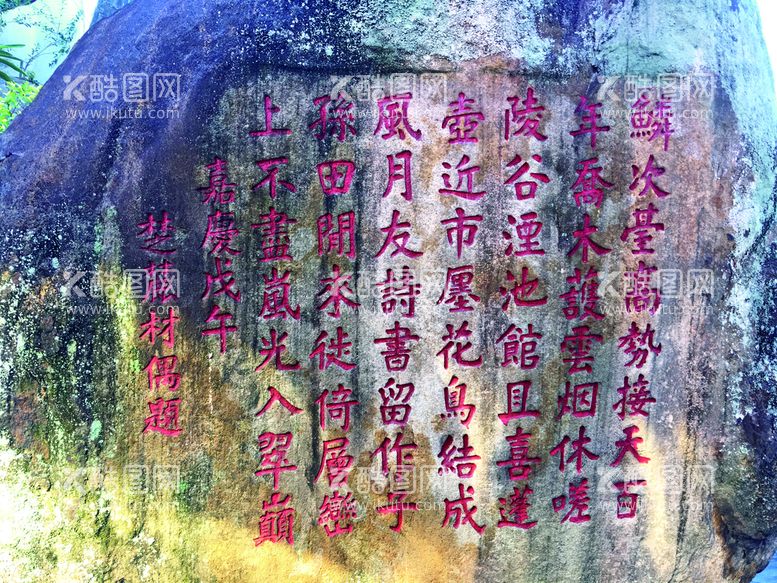 鱗次臺高勢接天百
年喬木護雲烟休嗟
陵谷湮池館且喜蓬
壺近市廛花鳥結成
風月友詩書留作子
孫田閒來徙倚層巒
上不盡嵐光入翠巔
嘉慶戊午
楚材偶題
酷图网
www.ikutu.com